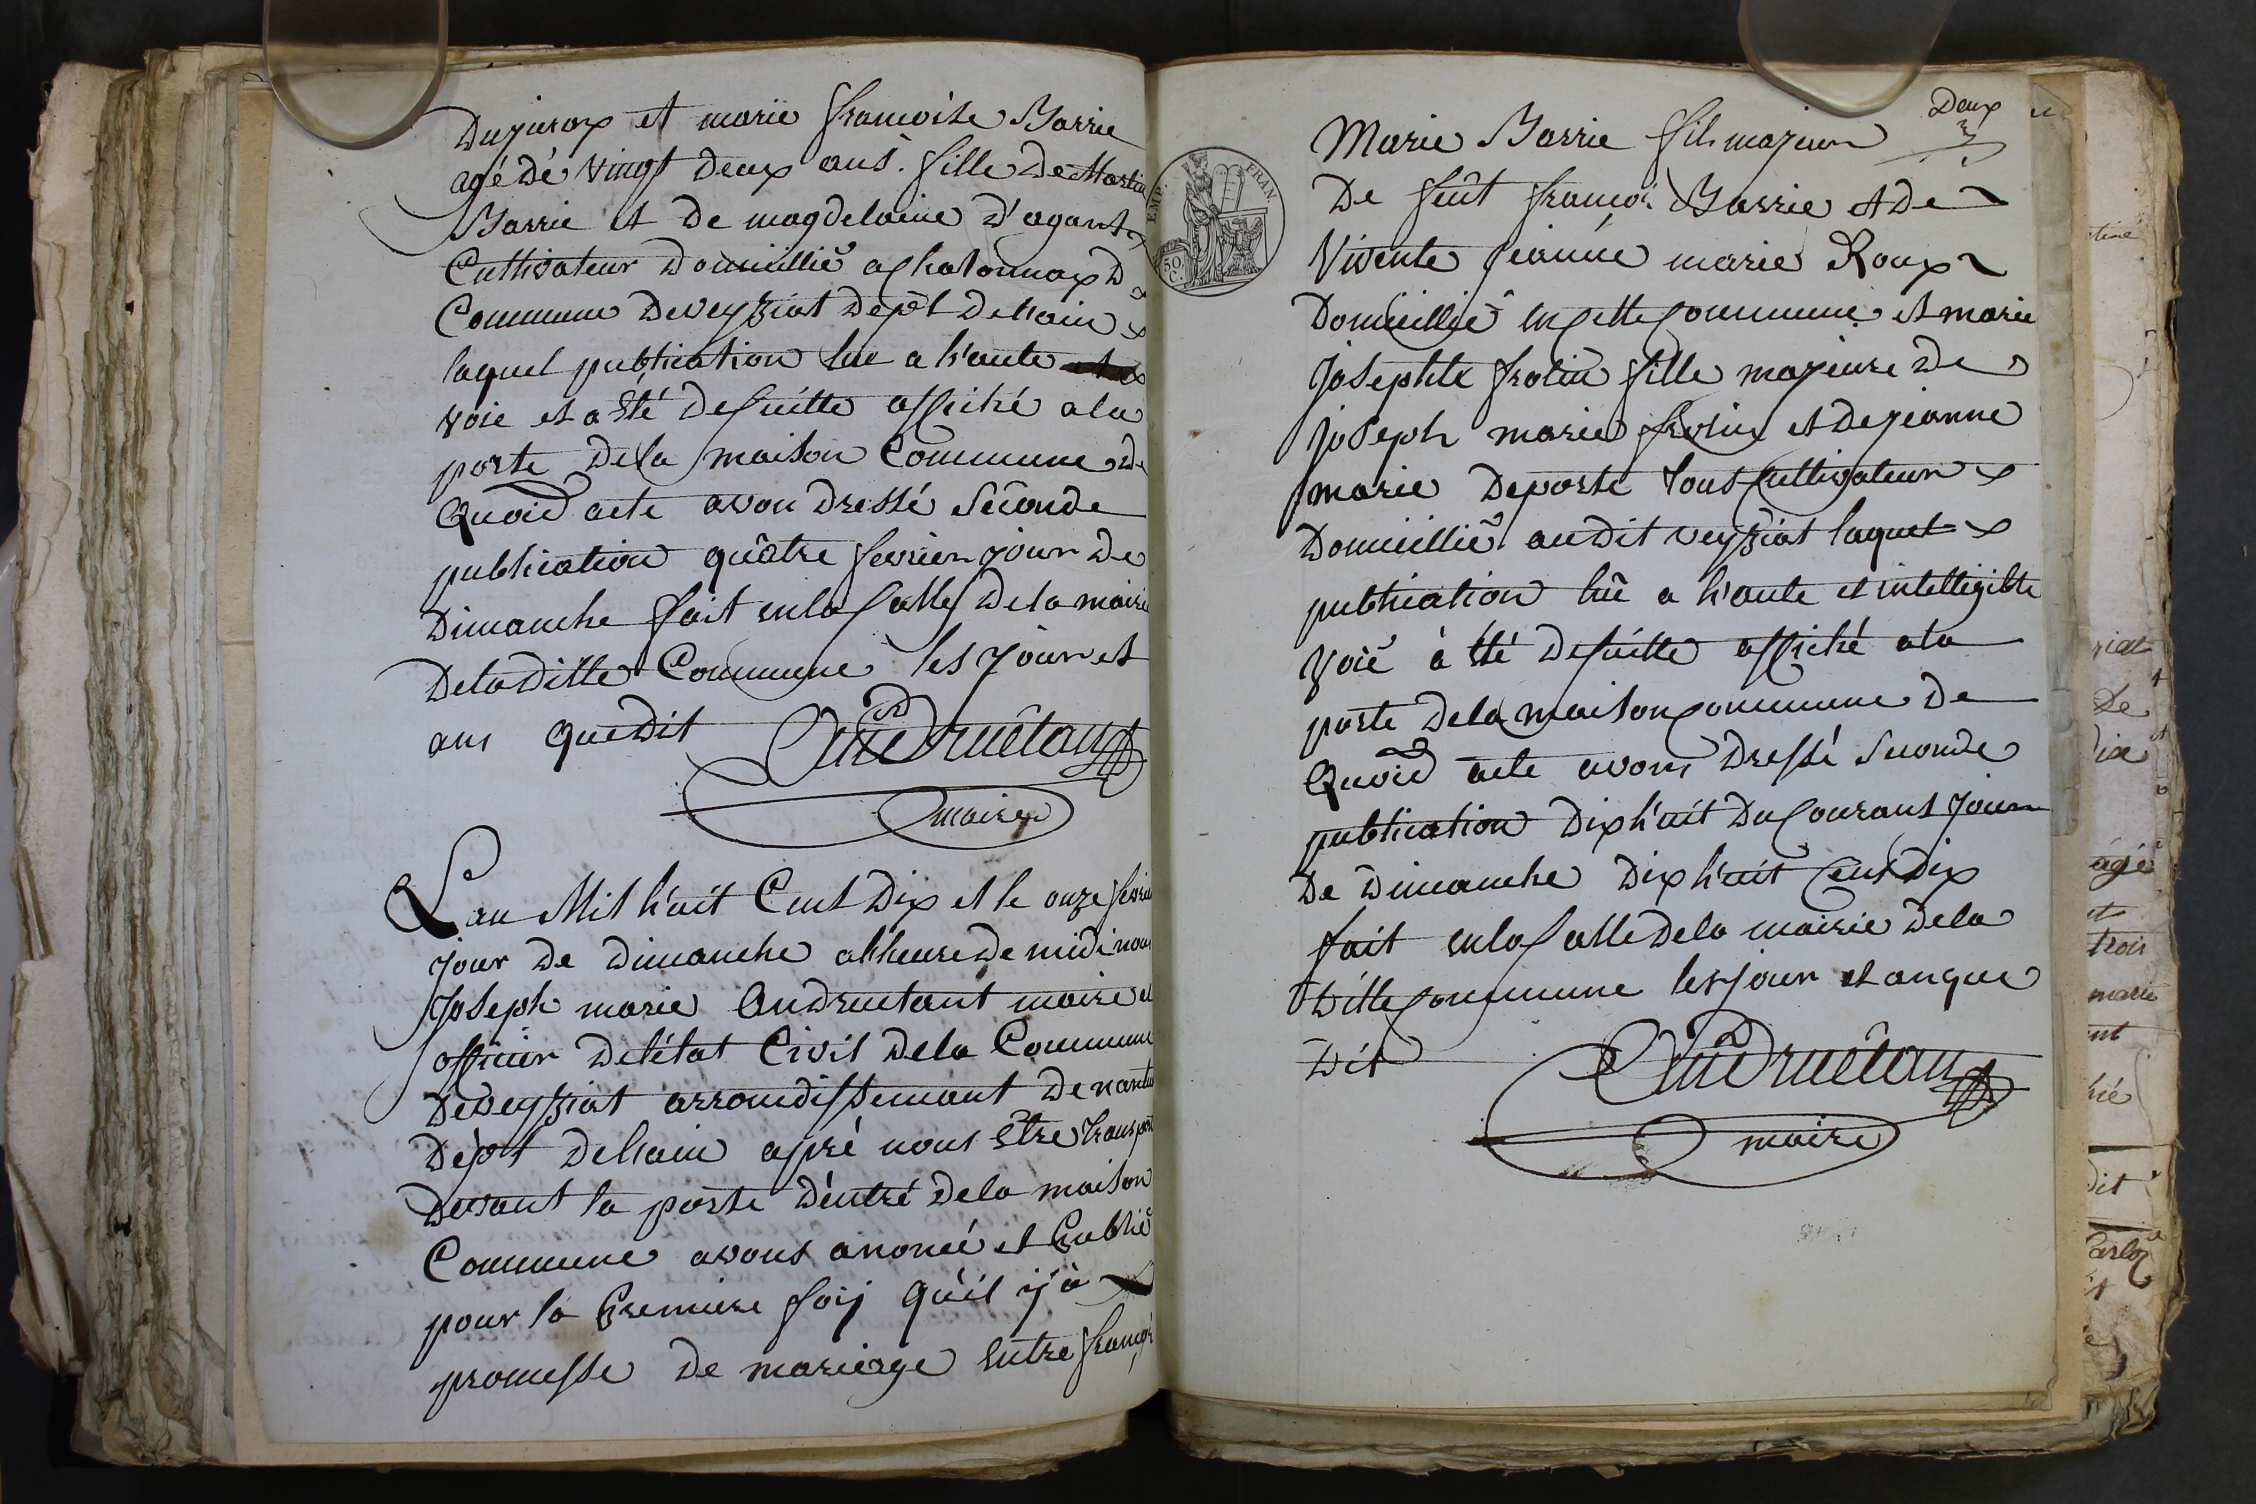 Dujurax et marie francoise Barrie
agé dé vingt deux ans. fille de Martin
Barrie et de magdelaine d'agant
Cultivateur domicillié a chatonnax
Commune deveyziat depôt delain
laquel publication lue a h'aute
voie et a été desuitte affiché ala
porte dela maison Commune de
quoid acte avon dressé séconde
publication quâtre fevrier jour de
dimanche fait enla salle de la mairie
deladitte Commune les jour et
ans que dit Andruétan
maire
Lan Mil h'uit Cent dix et le onze fevrier
jour de dimanche alheure de midi nous
Joseph marie Andruetant maire et
officier delétat Civil dela Commune
deveyziat arrondissemant de nantua
dépôt delain apré nous être transporté
devant la porte d'entré dela maison
Commune avons anoncé et Publié
pour la Premiere foij qu'il y'à
promesse de mariage entre françoi
Deux
EMP. FRAN.
50 C.
Marie Barrie fils majeur
De feût françoi Barrie et de
Vivente jeanne marie Roux
Domicillié en cette commune et marie
Josephte frolin fille majeure de
Joseph marie frolin et de jeanne
marie deporte tous cultivateur
Domicillié audit veyziat laquel
publication luê a h'aute et intelligible
voie à été desuitte affiché ala
porte dela maison commune de
quoid acte avons dressé seconde
publication dixh'uit du courant jour
de dimanche dix h'uit cent dix
fait enla salle dela mairie dela
ditte commune les jour et an que
dit Andruétan
maire